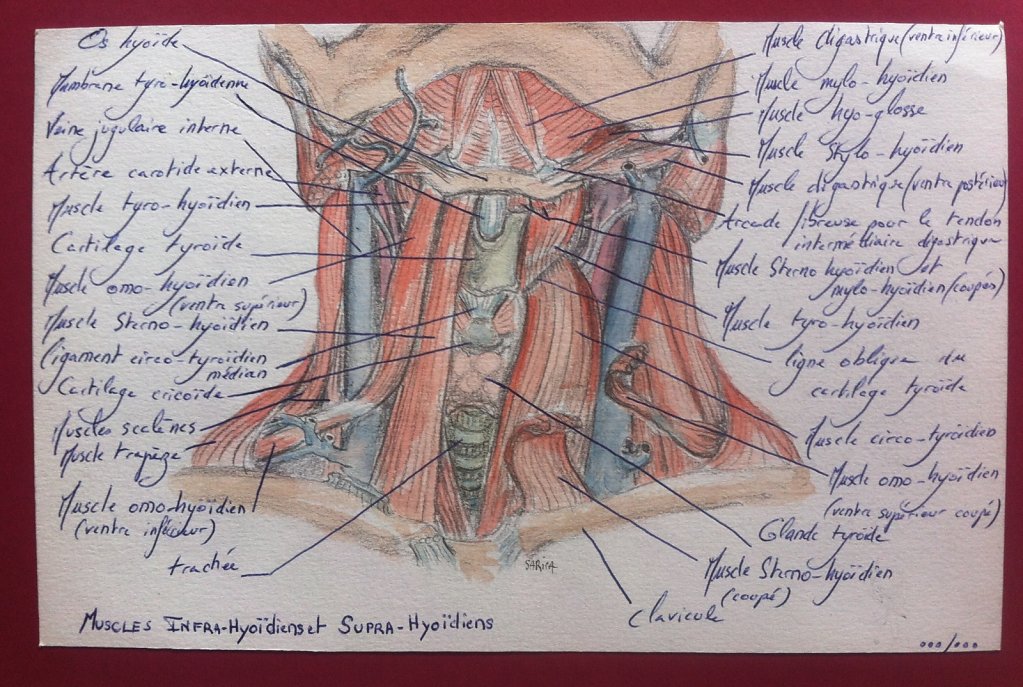 Os hyoïde
Membrane tyro-hyoïdenne
Veine jugulaire interne
Artère carotide externe
Muscle tyro-hyoïdien
Cartilage tyroïde
Muscle omo-hyoïdien
(ventre supérieur)
Muscle Sterno-hyoïdien
Ligament circo tyroïdien
médian
Cartilage cricoïde
Muscles scalènes
Muscle trapèze
Muscle omo-hyoïdien
(ventre inférieur)
trachée
Muscles Infra-Hyoïdiens et Supra-Hyoïdiens
Muscle digastrique (ventre inférieur)
Muscle mylo-hyoïdien
Muscle hyo-glosse
Muscle Stylo-hyoïdien
Muscle digastrique (ventre postérieur)
Arcade fibreuse pour le tendon
intermédiaire digastrique
Muscle Sterno hyoïdien et
mylo-hyoïdien (coupés)
Muscle tyro-hyoïdien
ligne oblique du
cartilage tyroïde
Muscle circo-tyroïdien
Muscle omo-hyoïdien
(ventre supérieur coupé)
Glande tyroïde
Muscle Sterno-hyoïdien
(coupé)
Clavicule
SARINA
000/000